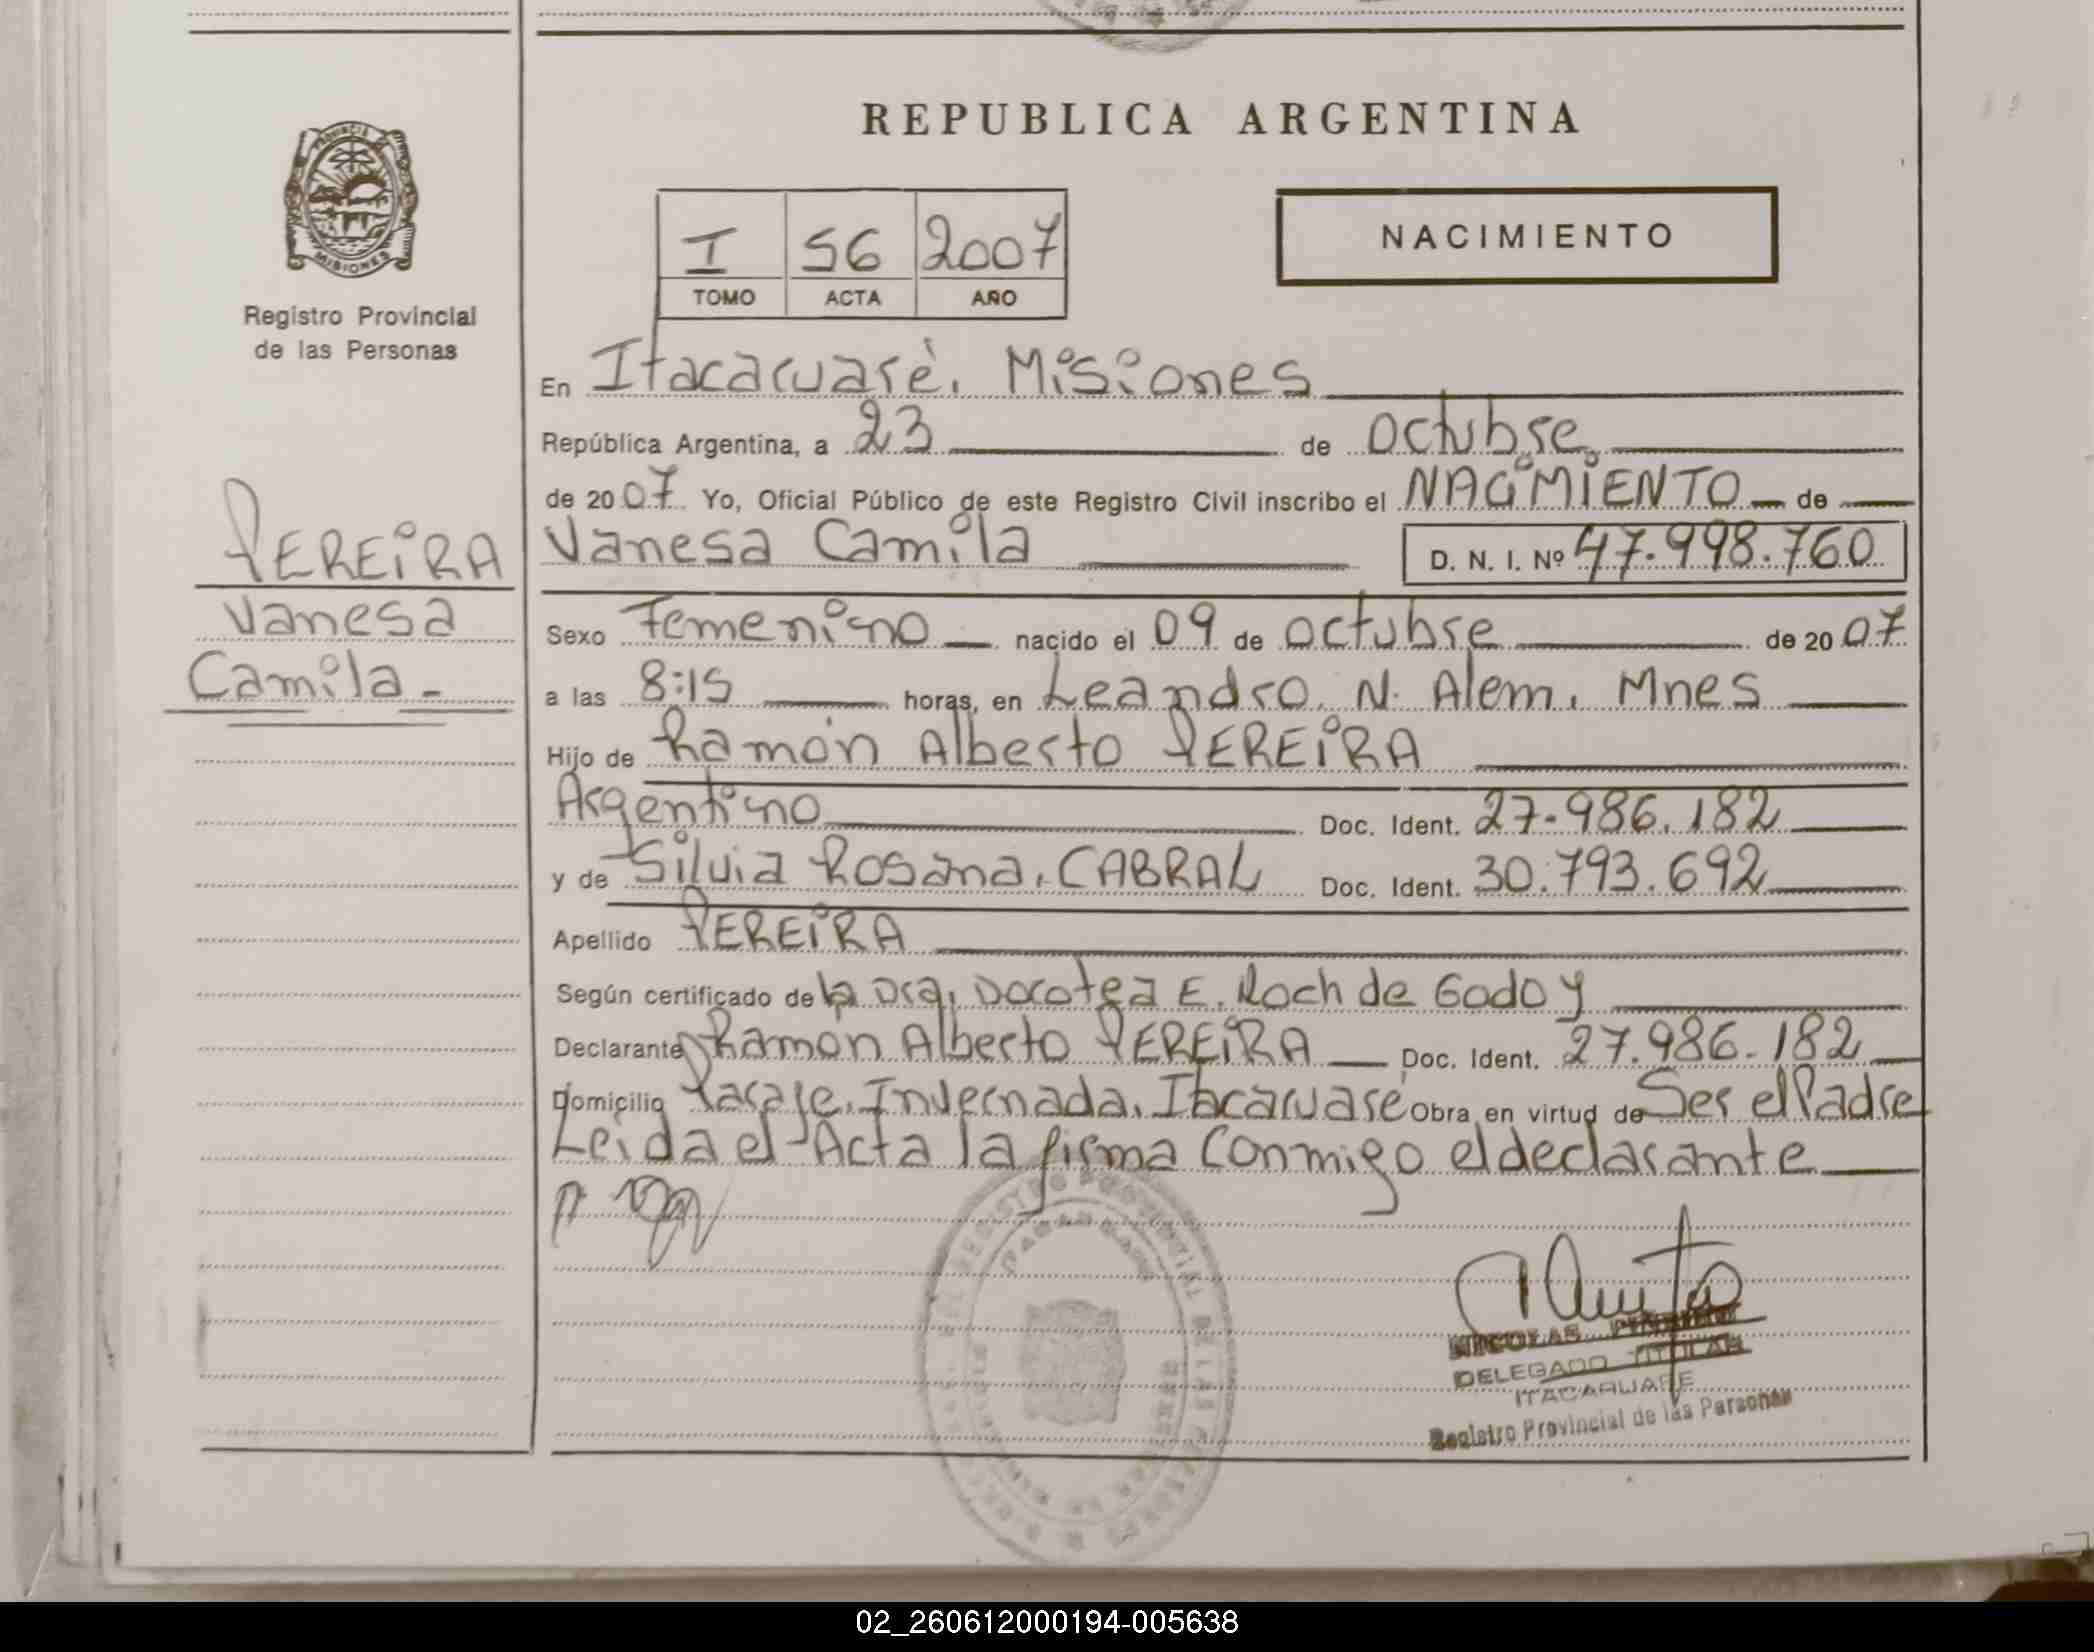 REPUBLICA ARGENTINA
PROVINCIA
MISIONES
Registro Provincial
de las Personas
I 56 2007
TOMO ACTA AÑO
NACIMIENTO
En Itacaruaré. Misiones
República Argentina, a 23 de octubre
de 2007 Yo, Oficial Público de este Registro Civil inscribo el NACIMIENTO de
Vanesa Camila D. N. I. Nº 47.998.760
PEREIRA
Vanesa
Camila.-
Sexo Femenino nacido el 09 de octubre de 2007
a las 8:15 horas, en Leandro. N. Alem. Mnes
Hijo de Ramón Alberto PEREIRA
Argentino Doc. Ident. 27.986.182
y de Silvia Rosana. CABRAL Doc. Ident. 30.793.692
Apellido PEREIRA
Según certificado de la Dra. Dorotea E. Roch de Godoy
Declarante Ramon Alberto PEREIRA Doc. Ident. 27.986.182
Domicilio Paraje. Invernada. Itacaruaré Obra en virtud de Ser el Padre
Leida el Acta la firma conmigo el declarante
NICOLAS
DELEGADO TITULAR
ITACARUARE
Registro Provincial de las Personas
02_260612000194-005638